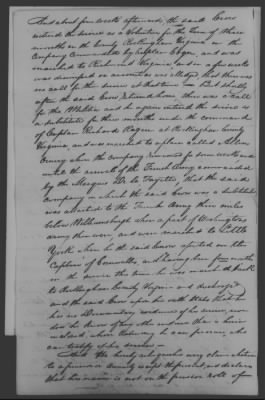 And about four weeks afterwards, the said Crow
entered the service as a Volunteer for the Term of three
months in the County Rockingham Virginia in the
Company Commanded by Captain Coger, and was
marched to Richmond Virginia, and in a few weeks
was discharged on account as was alleged that there was
no call for their services at that time But shortly
after the said Crow returned home there was a Call
for the Militia and he again entered the service as
a substitute for three months under the command
of Captain Richard Ragan at Rockingham County
Virginia, and was marched to a place called
when the company remained for some weeks and
until the arrival of the French Army commanded
by the Marquis De La Fayette, that the said
Company in which the said Crow was a substitute
was attached to the French Army three miles
below Williamsburgh where a part of Washingtons
Army then were, and were marched to Little
York when he the said Crow assisted in the
Capture of Cornwallis and having been four months
in the service this time he was marched back
to Rockingham County Virginia and discharged
and the said Crow upon his oath states that he
has no Documentary evidence of his service, nor
does he know of any other
whose testimony he can procure who
can testify of his service
And he hereby relinquishes every claim whatever
to a pension or annuity except the present, and declares
that his name is not on the pension role of